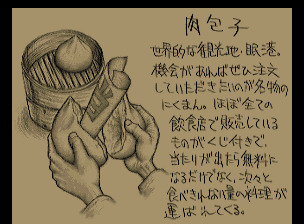 肉包子
世界的な観光地、眠港。
機会があればぜひ注文
していただきたいのが名物の
にくまん。ほぼ全ての
飲食店で販売している
ものがくじ付きで、
当たりが出たら無料に
なるだけでなく、次々と
食べきれない量の料理が
運ばれてくる。